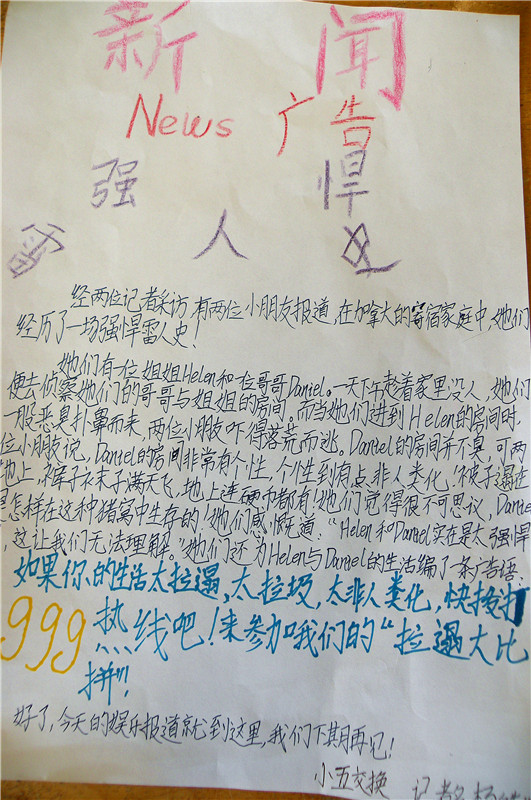 新 闻
News 广告
强 悍
人
经两位记者采访,有两位小朋友报道,在加拿大的寄宿家庭中,她们
经历了一场强悍雷人史!
她们有一位姐姐Helen和一位哥哥Daniel。一天下午趁着家里没人,她们
便去侦察她们的哥哥与姐姐的房间。而当她们进到Helen的房间时,
一股恶臭扑鼻而来,两位小朋友吓得落荒而逃。Daniel的房间并不臭,可两
位小朋友说,Daniel的房间非常有个性,个性到有点“非人类化”,被子遢在
地上,裤子衣末子满天飞,地上连硬币都有!她们觉得很不可思议,Daniel
是怎样在这种猪窝中生存的!她们感慨道:“Helen和Daniel实在是太强悍
,这让我们无法理解。”她们还为Helen与Daniel的生活编了一条广告语:
如果你的生活太拉遢,太垃圾,太非人类化,快拨打
999热线吧!来参加我们的“拉遢大比
拼”!
好了,今天的娱乐报道就到这里,我们下期再见!
小五交换 记者 杨